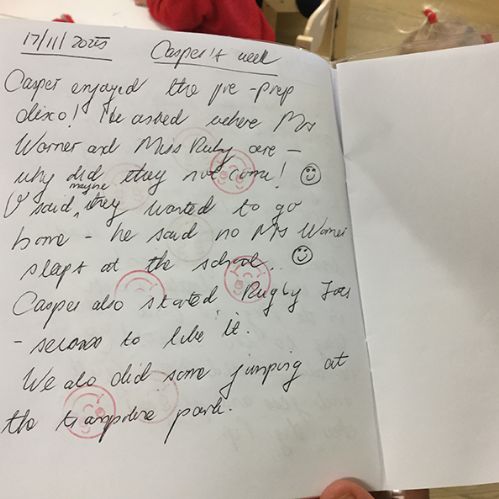 17/11/2025 Casper's week
Casper enjoyed the pre-prep
disco! He asked where Mrs
Warner and Miss Ruby are -
why did they not come! ☺
I said, maybe they wanted to go
home - he said no Mrs Warner
sleeps at the school. ☺
Casper also started Rugby Tots
- seems to like it.
We also did some jumping at
the trampoline park.